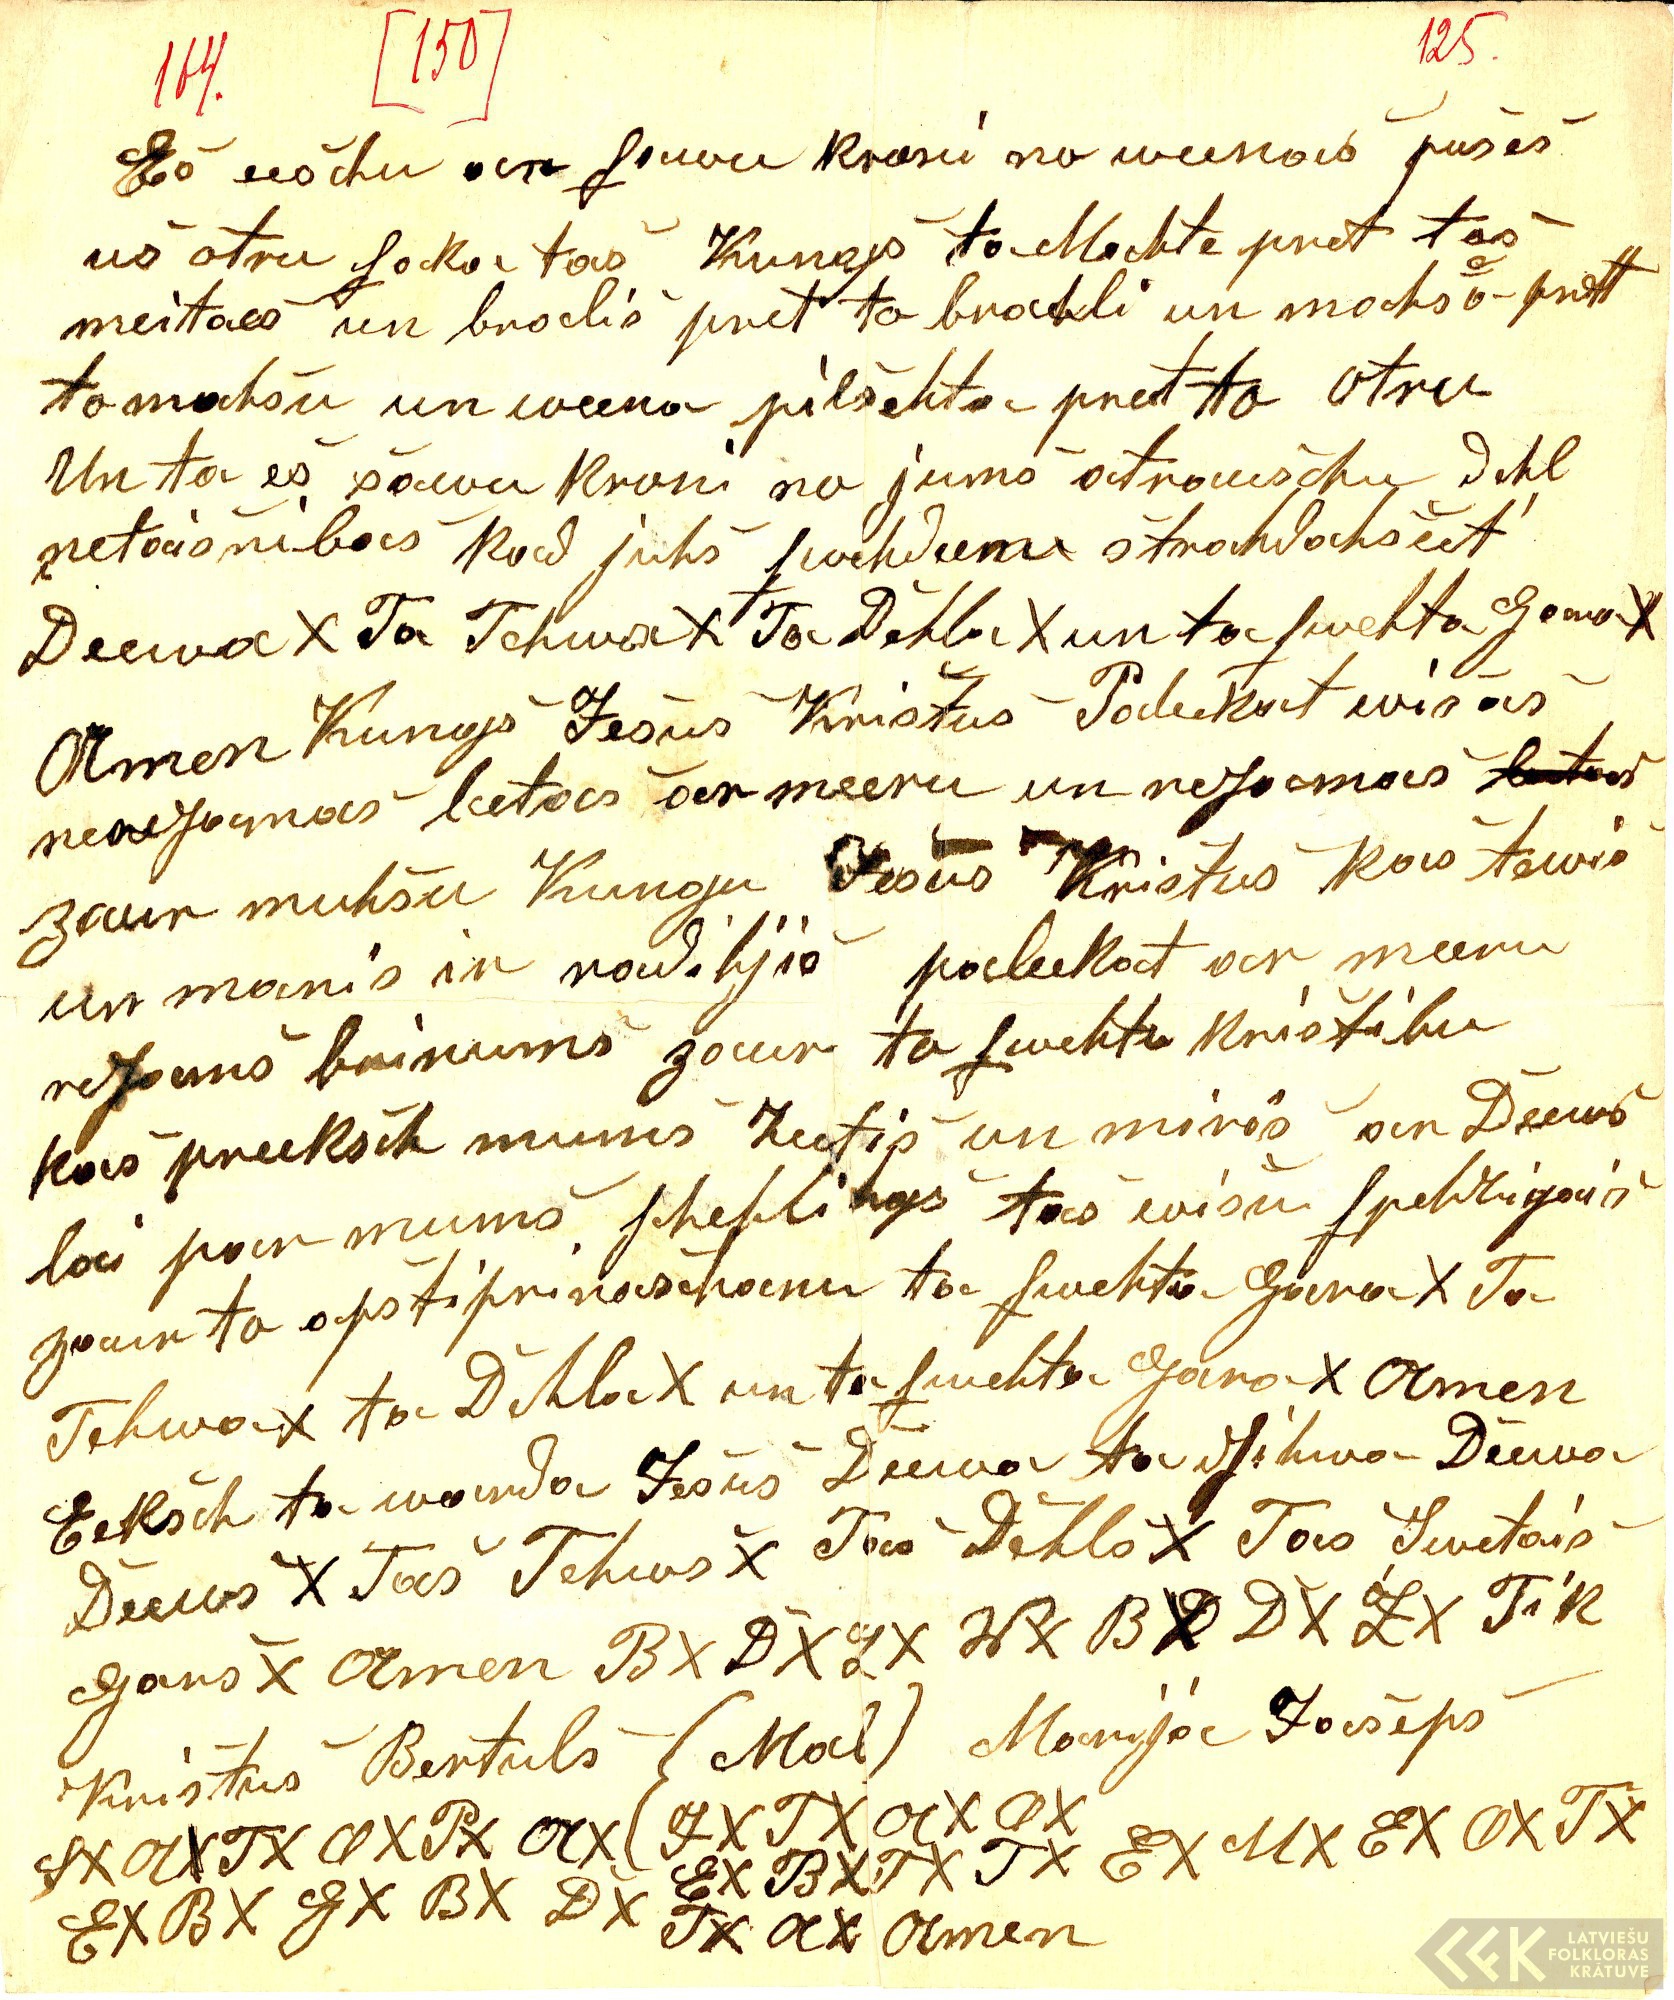 164. [150] 125.
Eš eešchu ar ſawu kroni no weenas pušeš
uš otru ſaka taš Kungs ta Mahte pret taš
meitaes un bralis pret to brahli un mahsa prett
to mahsu un weena pilsehta pret to otru
Un ta eš šawu kroni no jums atraušchu dehl
netaišnibas kad juhs ſwehdeenu štrahdahseet
Deewa X Ta Tehwa X Ta Dehla X un ta ſwehta Gara X
Amen Kungs Jesus Kristus Paleekat wisas
neredſamas leetas ar meeru un redſamas
zaur muhsu Kungu Jesus Kristus kas tewis
un manis ir radihjis paleekat ar meeru
redſams brinums zaur to ſwehtu kristibu
kas preeksch mums zeetis un miris ar Deews
lai par mums ſchehligs tas wisu ſpehzigais
zaur to apstiprinaschanu ta ſwehta Gara X Ta
Tehwa X ta Dehla X un ta ſwehta Gara X Amen
Eeksch ta warda Jesus Deewa ta dſihwa Deewa
Deews X Tas Tehws X Tas Dehls X Tas Swetais
Gars X Amen B X D X Z X W X B X D X Z X Tik
Kristus Bertuls (Mal) Marija Jaseps
S X A X T X O X P X A X ( I X T X A X O X
E X B X T X T X E X M X E X O X T X
E X B X G X B X D X
T X A X Amen
LATVIEŠU
FOLKLORAS
KRĀTUVE